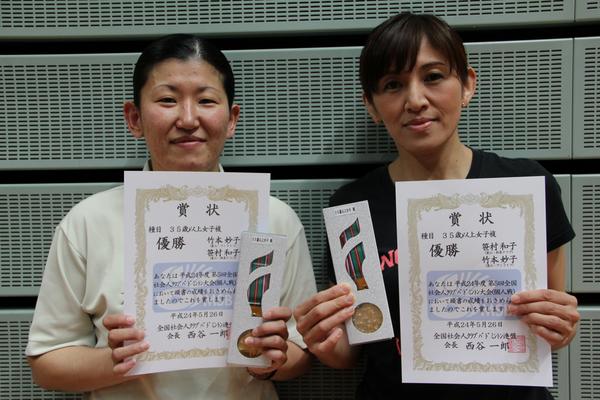 賞状
種目 35歳以上女子複
優勝 竹本妙子
笹村和子
あなたは平成24年度第5回全国
社会人クラブバドミントン大会(個人戦)
において頭書の成績をおさめられ
ましたのでこれを賞します
平成24年5月26日
全国社会人クラブバドミントン連盟
会長 西谷一郎
賞状
種目 35歳以上女子複
優勝 笹村和子
竹本妙子
あなたは平成24年度第5回全国
社会人クラブバドミントン大会(個人戦)
において頭書の成績をおさめられ
ましたのでこれを賞します
平成24年5月26日
全国社会人クラブバドミントン連盟
会長 西谷一郎